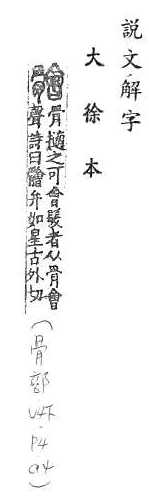 說文解字
大徐本
䯤骨擿之可會髮者从骨會
聲詩曰䯤弁如星古外切
(骨部 V4下·P4 a4)